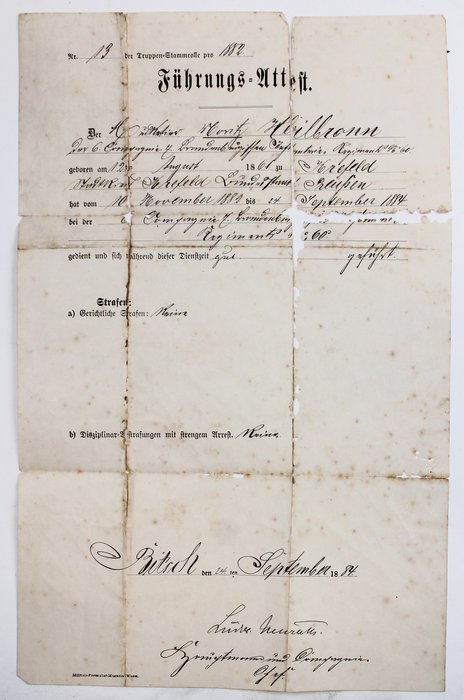 Nr. 13 der Truppen-Stammrolle pro 1882.
Führungs-Attest.
Der Musketier Moritz Heilbronn
der 6. Compagnie 7. Brandenburgischen Infanterie Regiments No 60.
geboren am 12 August 1861 zu Krefeld
Krefeld Bundesstaat Preußen
hat vom 10 November 1882 bis 24 September 1884
bei der 6 Compagnie 7. Brandenb
Regiments 60
gedient und sich während dieser Dienstzeit gut geführt.
Strafen:
a) Gerichtliche Strafen: Keine
b) Disziplinar-Bestrafungen mit strengem Arrest. Keine.
Bitsch den 24 ten September 1884
Hauptmann und Compagnie
Chef.